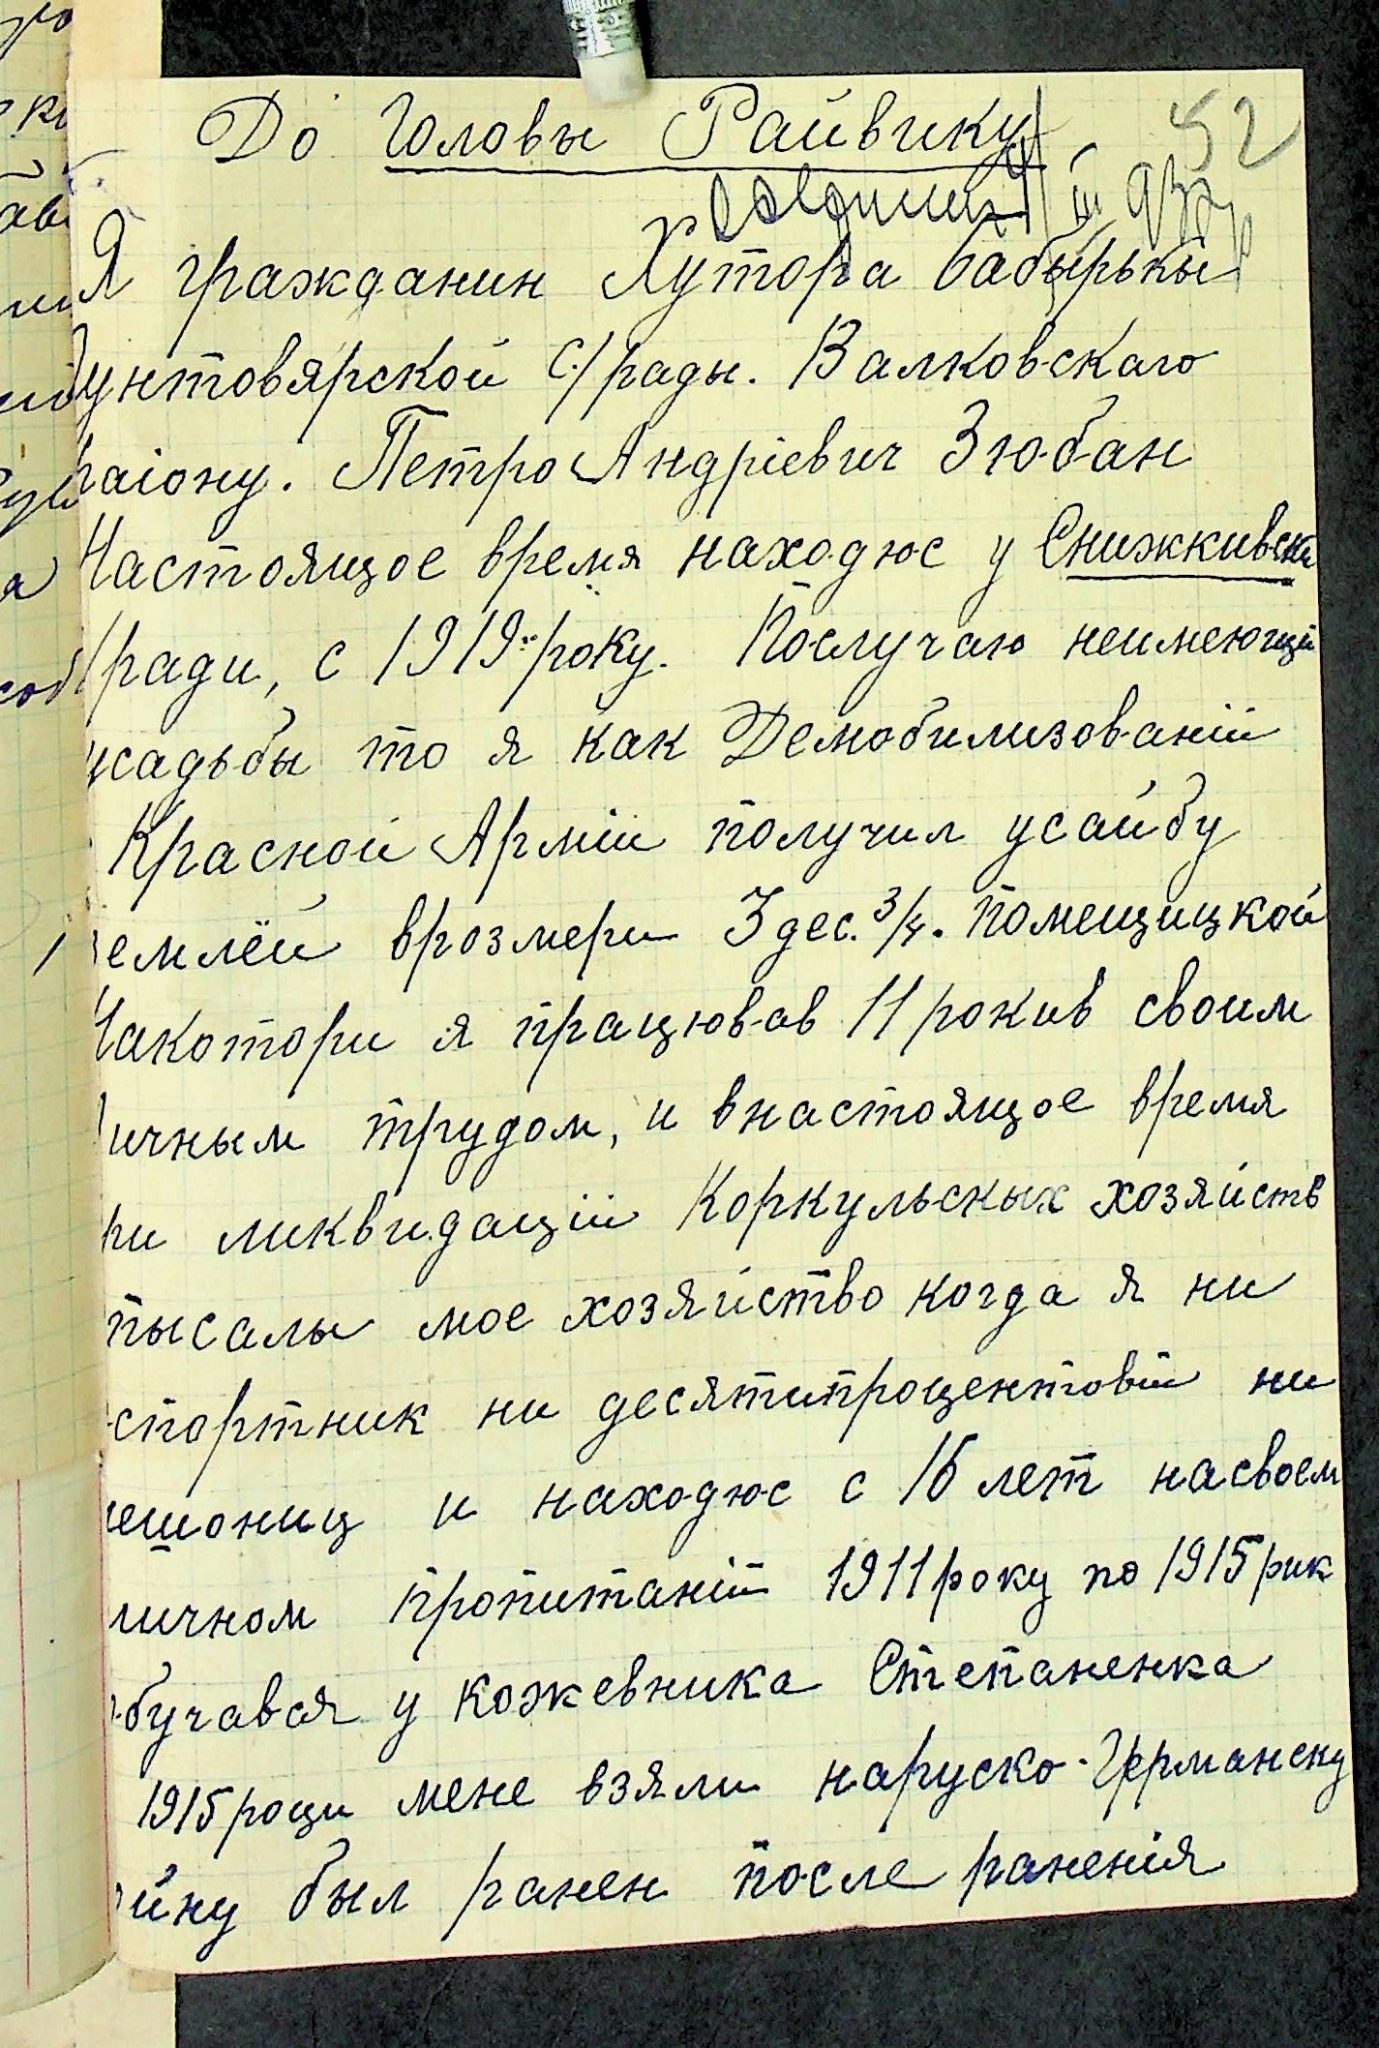 52
До Головы Райвику
Я гражданин Хутора Бабырькы
унтовярской с/рады. Валковскаго
раіону. Петро Андріевич Зюбан
Настоящое время находюс у Снижкивск
ради, с 1919 року. Послучаю неимеющій
усадьбы то я как Демобилизованій
Красной Арміи получил усайбу
землёй врозмери 3 дес. 3/4. помещицкой
Накотори я працював 11 рокив своим
личным трудом, и внастоящое время
ри ликвидаціи Коркульскых хозяйств
пысалы мое хозяйство когда я ни
спортник ни десятипроцентовій ни
ешониц и находюс с 16 лет насвоем
личном пропитаніи 1911 року по 1915 рик
обучався у кожевника Степаненка
1915 роци мене взяли наруско-Германску
ойну был ранен после раненія